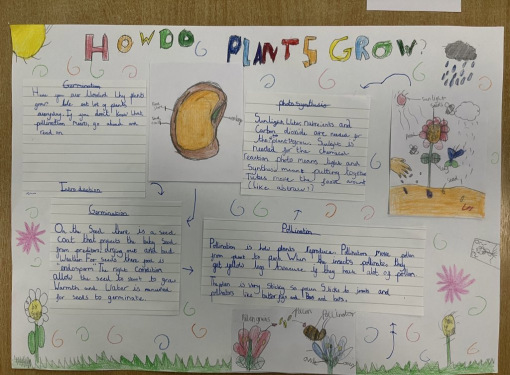 HOW DO PLANTS GROW?
Germination
Have you ever wondered why plants
grow? We eat lots of plants
everyday. If you don't know what
pollination means, go ahead and
read on.
Introduction
Germination
On the Seed there is a seed
Coat that protects the baby Seed
from predators, drying out and bad
Weather. For seeds their food is
endosperm. The right condition
allow the seed to start to grow.
Warmth and Water is required
for seeds to germinate.
photosynthesis
Sunlight, Water, nutrients and
Carbon dioxide are needed for
the plant to grow. Sunlight is
needed for the chemical
reaction. photo means light and
Synthesis means putting together
Tubes move the food around
(like a straw!)
Sunlight
Pollination
Pollination is how plants reproduce. Pollinators move pollen
from plant to plant. When the insects pollinate, they
get yellow legs because they have alot of pollen.
The pollen is very Sticky so pollen Sticks to insects and
pollinators like butterflys and bees and bats.
pollen
pollinator